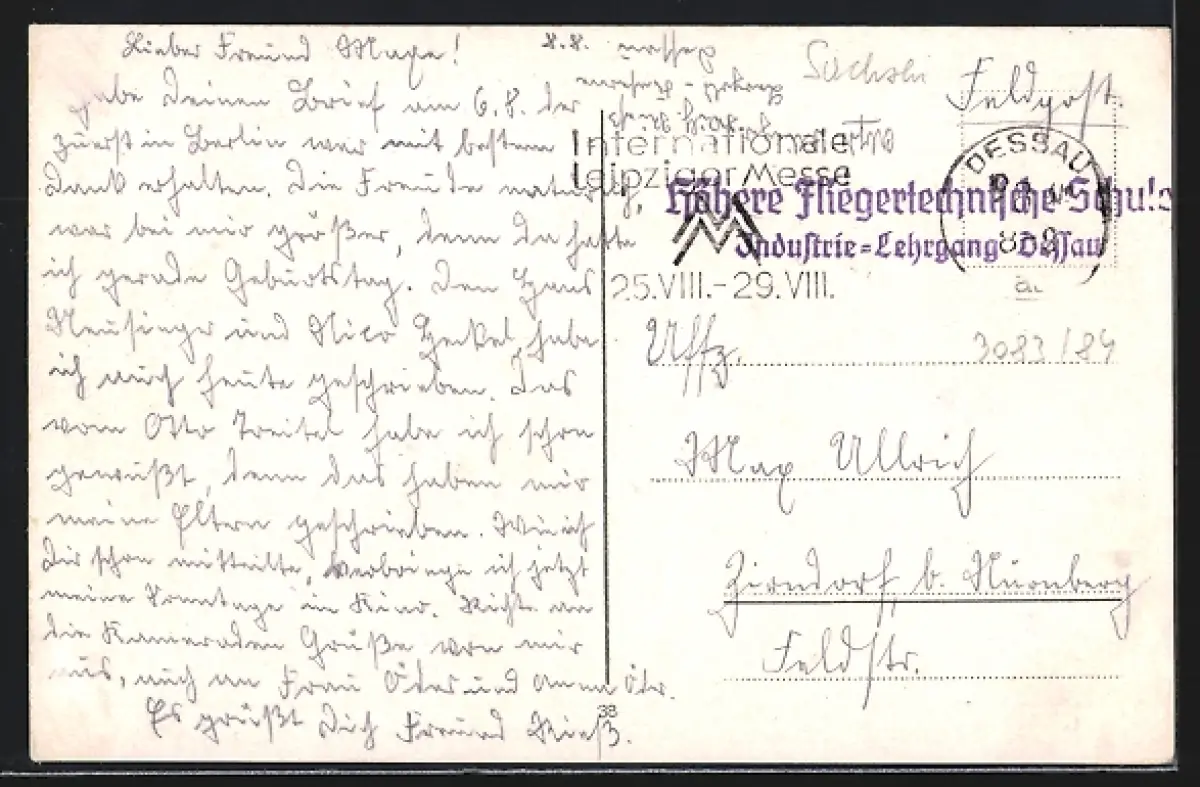 Lieber Freund Maxe!
habe Deinen Brief am 6.8. der
zuerst in Berlin war mit bestem
Dank erhalten. Die Freude natürlich,
war bei mir größer, denn da hatte
ich gerade Geburtstag. Den Hans
Neusinger und Nico Henkel, habe
ich auch heute geschrieben. Das
vom Otto Treitel habe ich schon
gewußt, denn das haben mir
meine Eltern geschrieben. Wie ich
Dir schon mitteilte, verbringe ich jetzt
meine Sonntage im Kino. Richte an
die Kameraden Grüße von mir
aus, auch an Frau Öder und Anna Öder.
Es grüßt Dich Freund Rieß.
8.8.
Dessau
Sachsen
Feldpost.
Internationale
Leipziger Messe
25.VIII.-29.VIII.
DESSAU
Höhere Fliegertechnische Schule
Industrie-Lehrgang Dessau
Uffz.
3083/84
Max Ullrich
Zirndorf, b. Nürnberg
Feldstr.
38